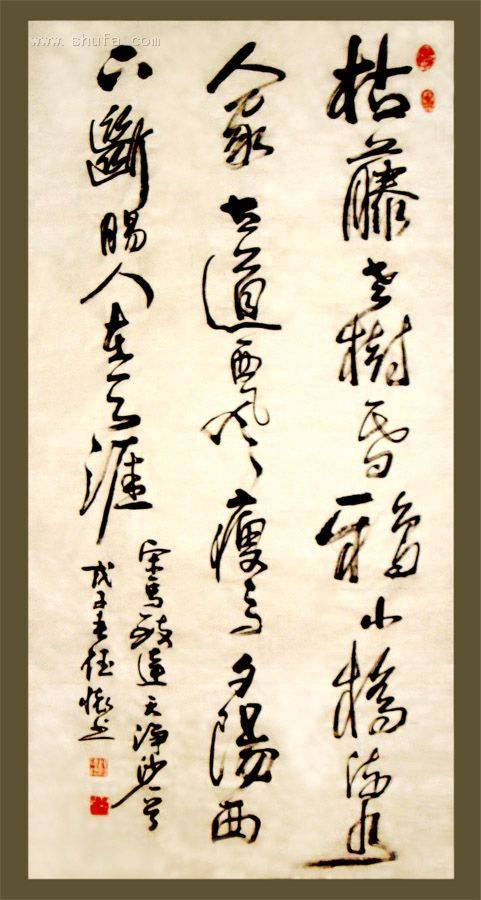 www.shufa.com
枯藤老樹昏鴉小橋流水
人家古道西風瘦馬夕陽西
下斷腸人在天涯
宋馬致遠天淨沙一首
戊子春